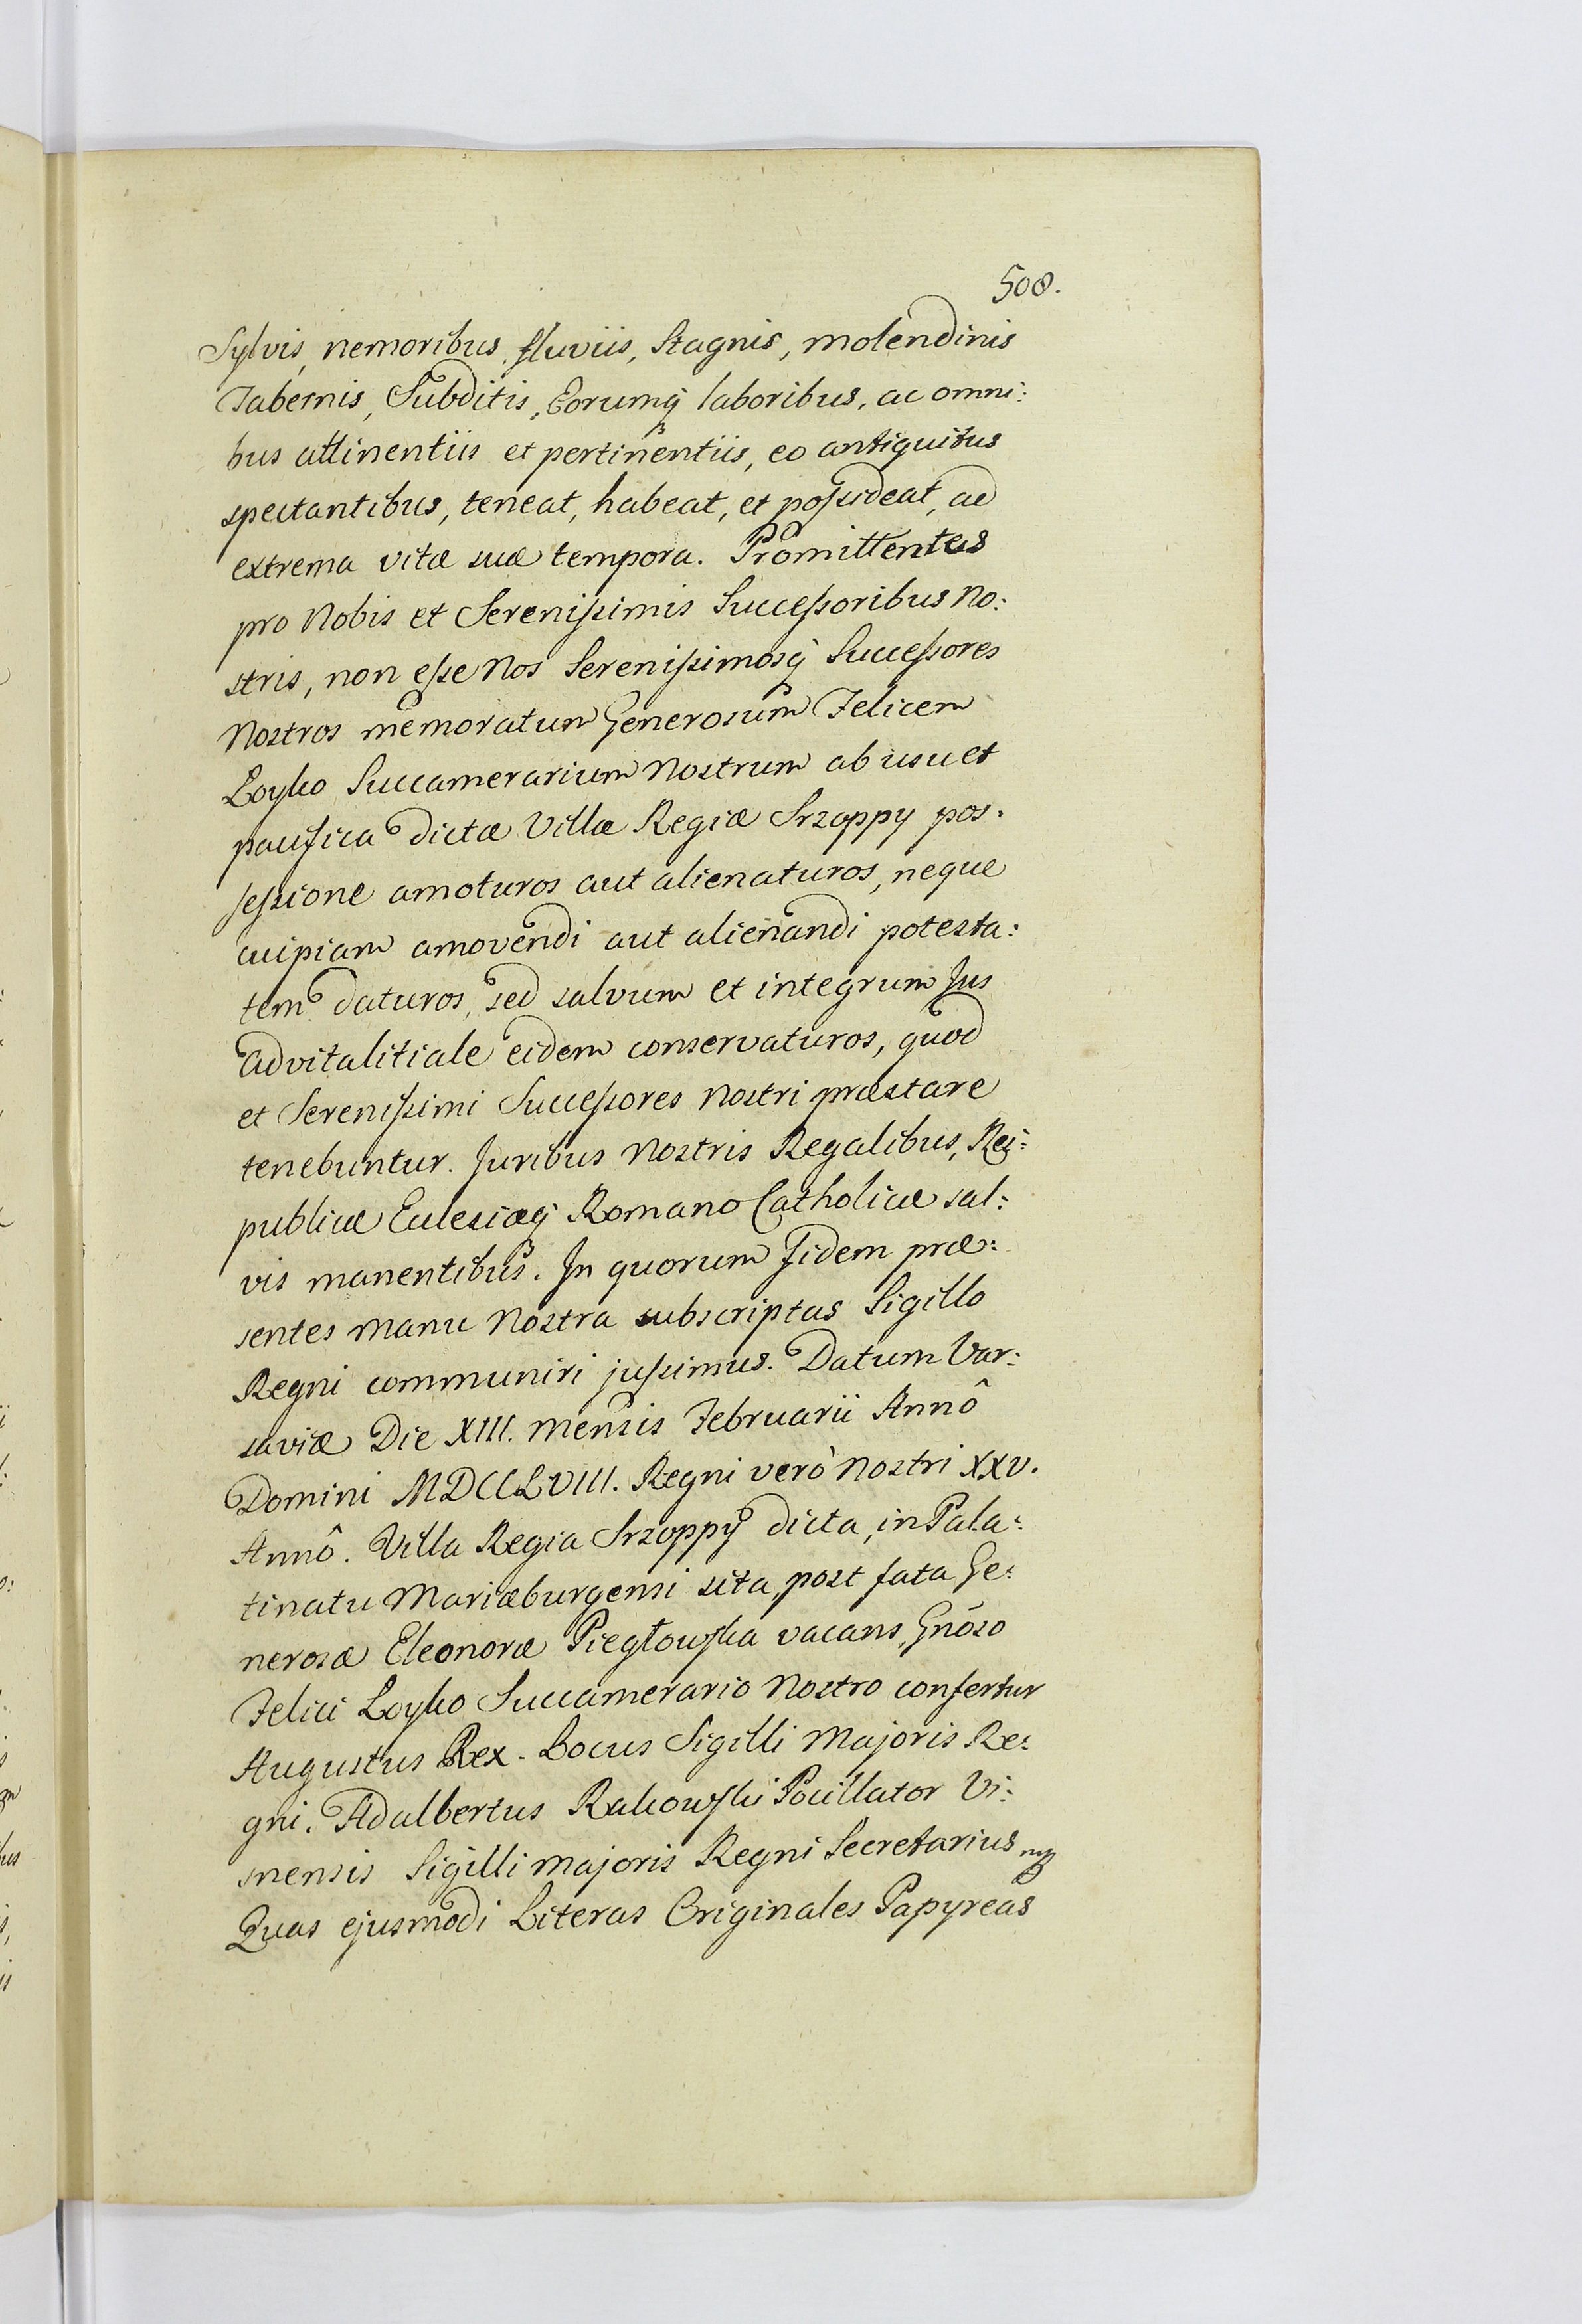 508.
Sylvis, nemoribus, fluviis, Stagnis, molendinis
Tabernis, Subditis, Eorumq́ laboribus, ac omni:
bus attinentiis et pertinentiis, eo antiquitus
spectantibus, teneat, habeat, et possideat, ad
extrema vitæ suæ tempora. Promittentes
pro Nobis et Serenissimis Successoribus No:
stris, non esse Nos Serenissimosq́ Successores
Nostros memoratum Generosum Felicem
Loyko Succamerarium Nostrum ab usu et
pacifica dictæ Villæ Regiæ Srzoppy pos.
sessione amoturos aut alienaturos, neque
cuipiam amovendi aut alienandi potesta:
tem daturos, sed salvum et integrum Jus
Advitalitiale eidem conservaturos, quod
et Serenissimi Successores Nostri præstare
tenebuntur. Juribus Nostris Regalibus, Rei:
publicæ Eclesiæq́ Romano Catholicæ sal:
vis manentibus. In quorum Fidem præ:
sentes Manu Nostra subscriptas Sigillo
Regni communiri jussimus. Datum Var:
saviæ Die XIII. Mensis Februarii Annô
Domini MDCCLVIII. Regni verò Nostri XXV.
Annô. Villa Regia Srzoppy dicta, in Pala:
tinatu Mariæburgensi sita, post fata Ge:
nerosæ Eleonoræ Piegłowska vacans, Gnõso
Felici Loyko Succamerario Nostro confertur
Augustus Rex. Locus Sigilli Majoris Re:
gni. Adalbertus Rakowski Pocillator Vi:
snensis Sigilli Majoris Regni Secretarius
Quas ejusmodi Literas Originales Papyreas